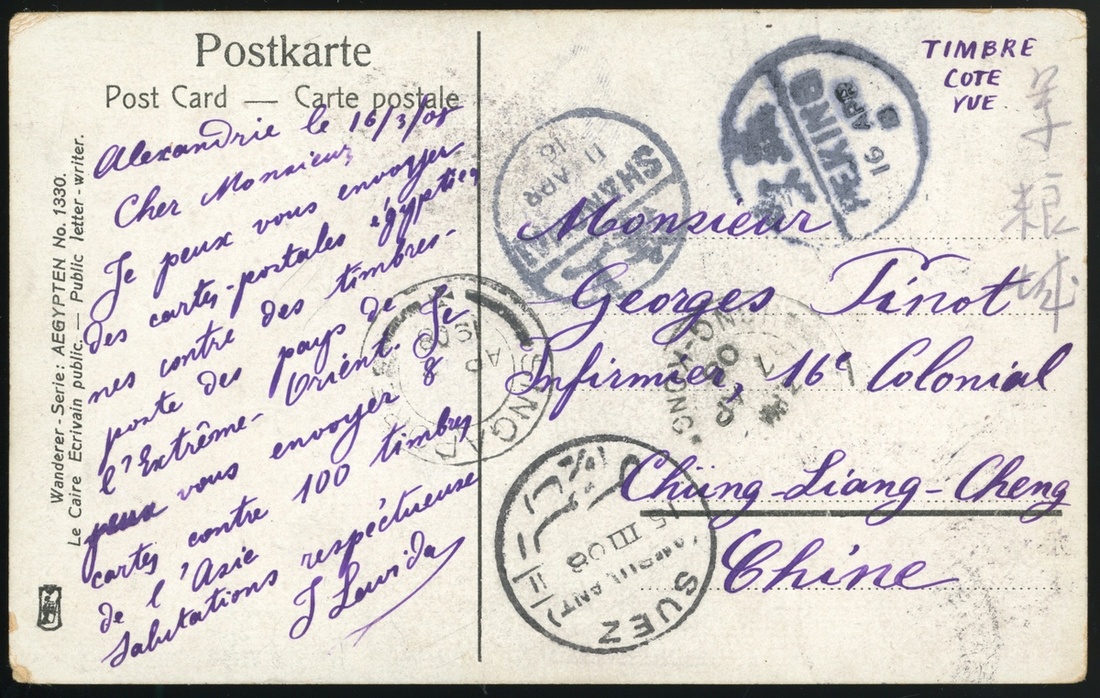 Postkarte
Post Card — Carte postale
Wanderer-Serie: AEGYPTEN No. 1330.
Le Caire Ecrivain public. — Public letter-writer.
Alexandrie le 16/3/08
Cher Monsieur,
Je peux vous envoyer
des cartes-postales égyptien
nes contre des timbres-
poste des pays de
l'Extrême-Orient. Je
peux vous envoyer 8
cartes contre 100 timbres
de l'Asie
Salutations respectueuse
TIMBRE
COTE
VUE
Monsieur
Georges Pinot
Infirmier, 16e Colonial
Chüng-Liang-Cheng
Chine
PEKING
16
APR
8
11
APR
HONG-KONG
SUEZ
(AMBULANT)
15 III 08